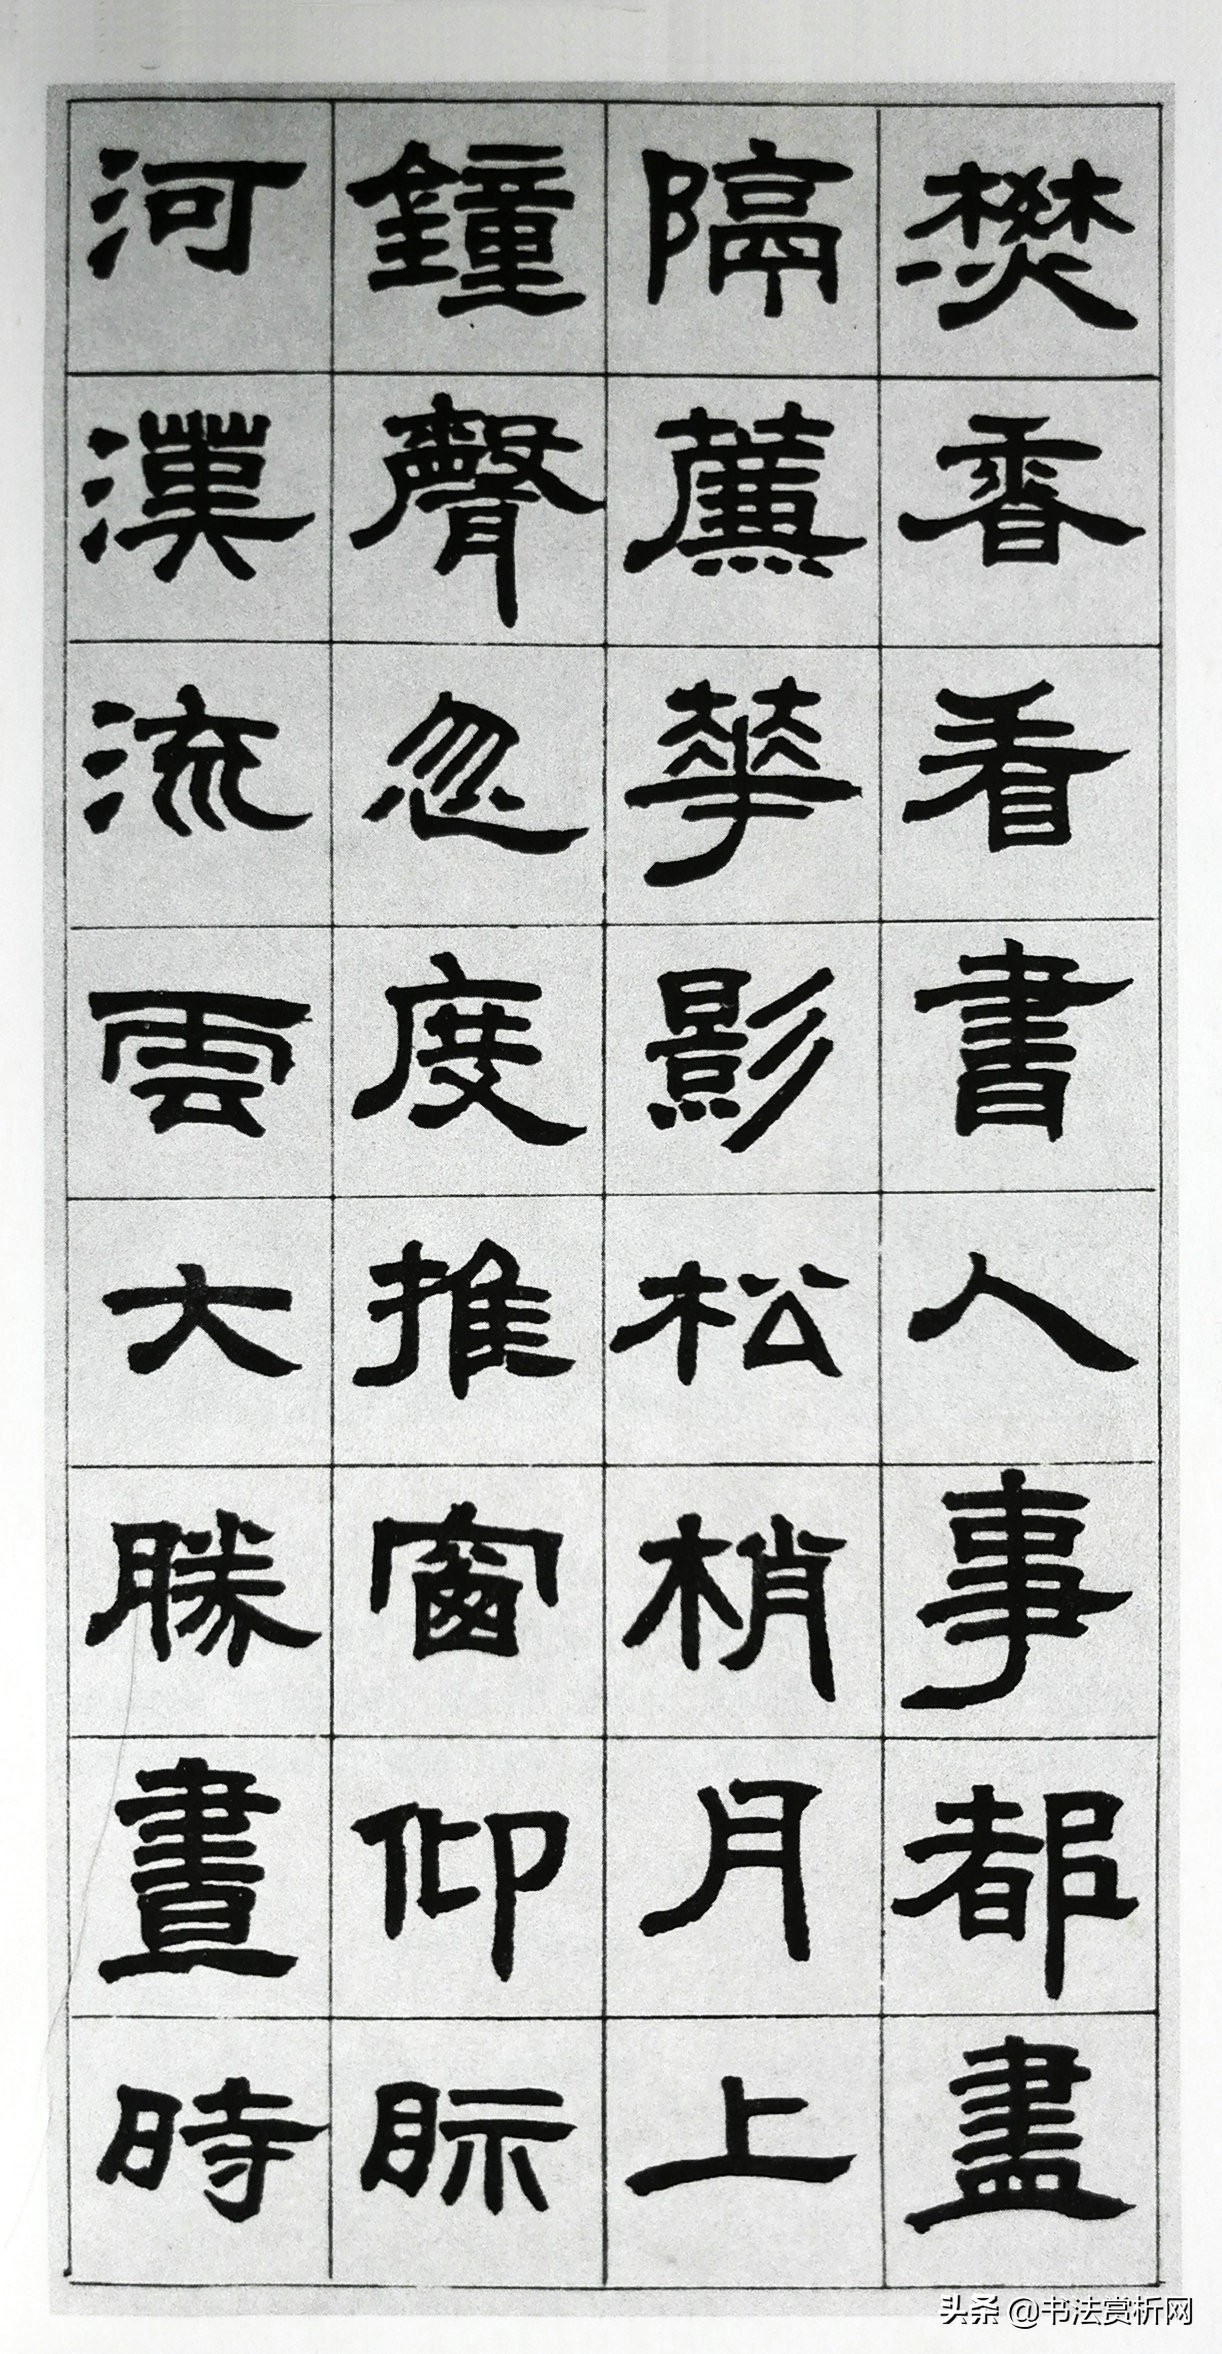 樊香看書人事都盡
隔薕華影松梢月上
鐘聲忽度推窗仰眎
河漢流雲大勝晝時
头条 @书法赏析网